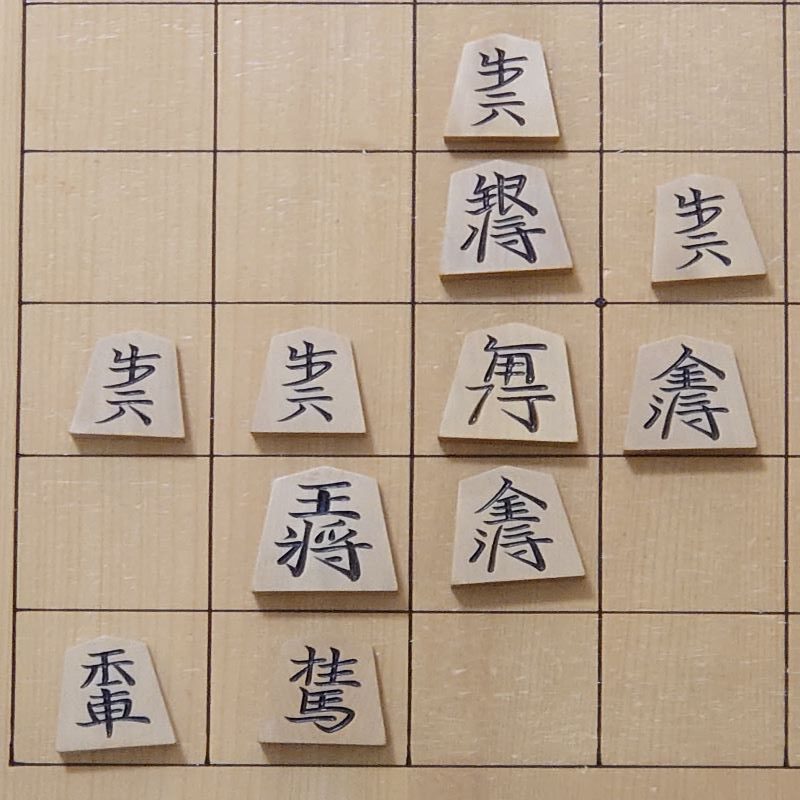 歩兵
銀将
歩兵
歩兵
歩兵
角行
金将
王将
金将
香車
桂馬